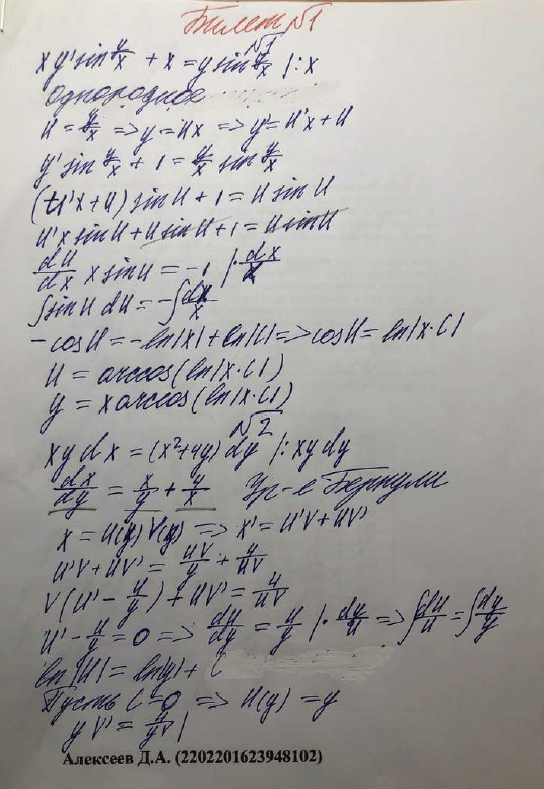 Билет №1
№1
xy' sin y/x + x = y sin y/x |:x
Однородное
u = y/x => y = ux => y' = u'x + u
y' sin y/x + 1 = y/x sin y/x
(u'x + u) sin u + 1 = u sin u
u'x sin u + u sin u + 1 = u sin u
du/dx x sin u = -1 | · dx/x
∫ sin u du = -∫ dx/x
-cos u = -ln|x| + ln|C| => cos u = ln|x·C|
u = arccos(ln|x·C|)
y = x arccos(ln|x·C|)
№2
xy dx = (x² + 4y) dy |: xy dy
dx/dy = x/y + 4/x Ур-е Бернули
x = u(y) v(y) => x' = u'v + uv'
u'v + uv' = uv/y + 4/uv
v(u' - u/y) + uv' = 4/uv
u' - u/y = 0 => du/dy = u/y | · dy/u => ∫ du/u = ∫ dy/y
ln|u| = ln|y| + C
Пусть C = 0 => u(y) = y
y v' = 4/yv |
Алексеев Д.А. (2202201623948102)